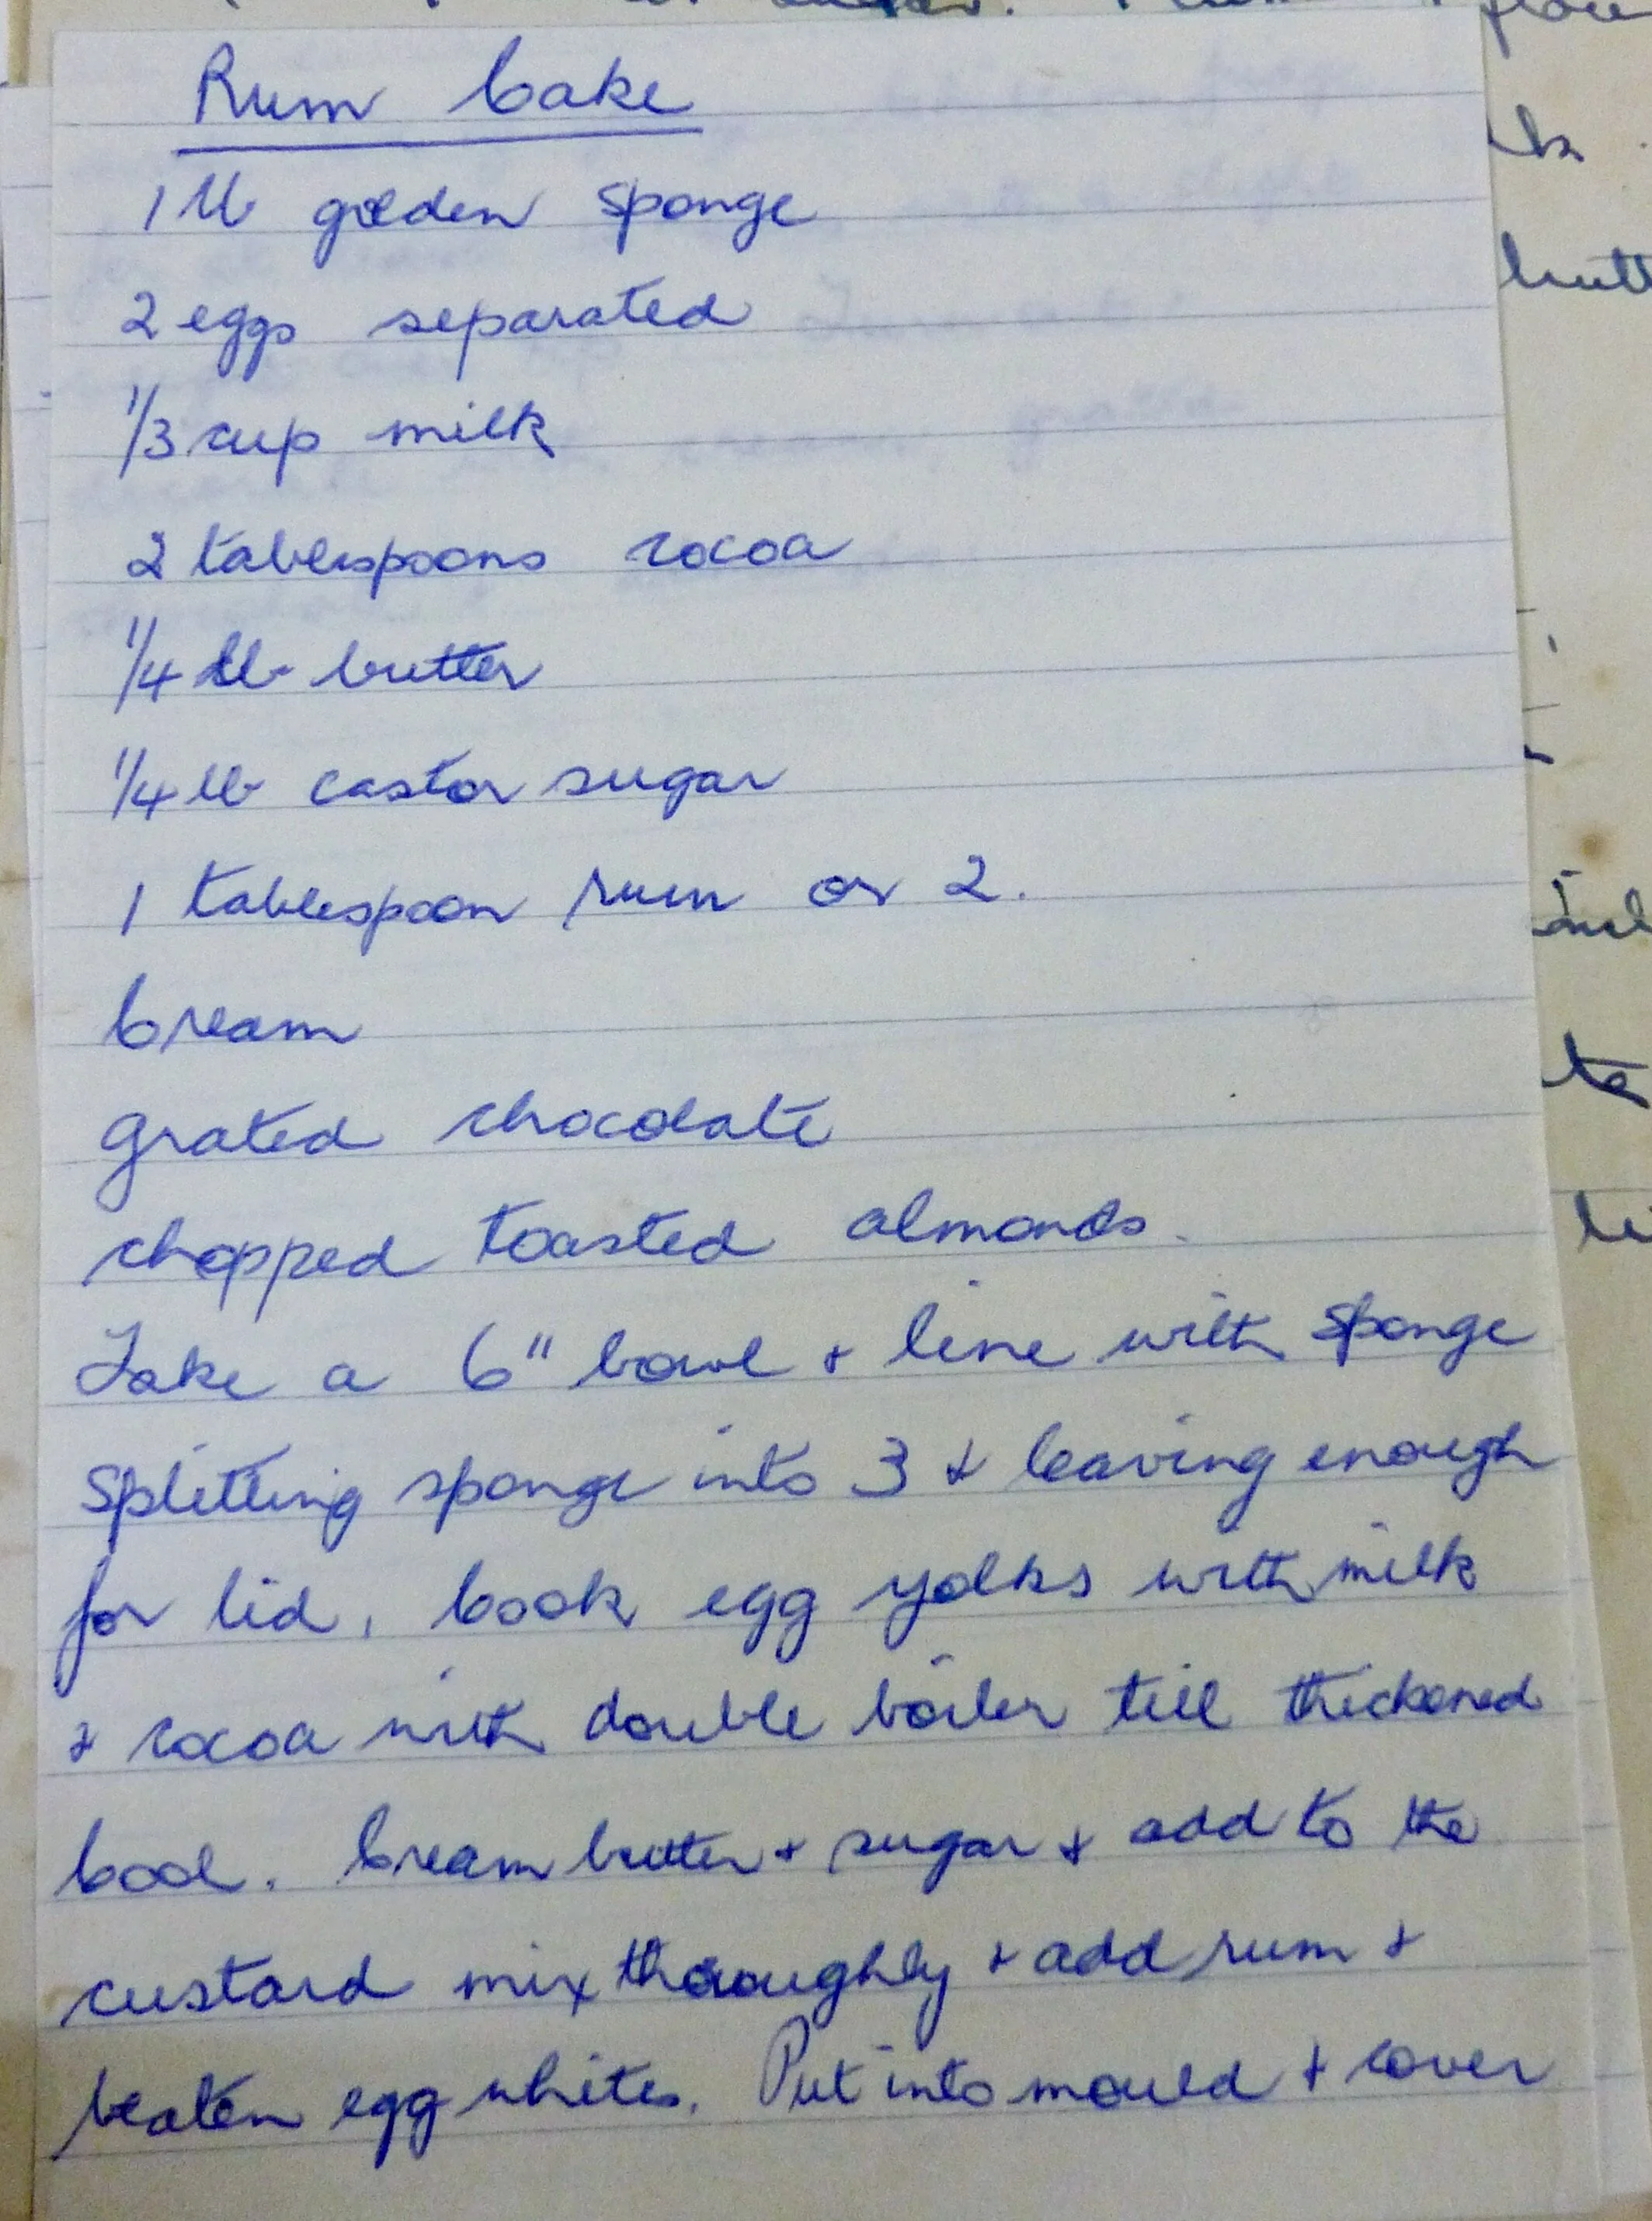 Rum Cake
1 lb golden sponge
2 eggs separated
1/3 cup milk
2 tablespoons cocoa
1/4 lb butter
1/4 lb castor sugar
1 tablespoon rum or 2.
Cream
grated chocolate
chopped toasted almonds.
Take a 6" bowl + line with sponge
splitting sponge into 3 + leaving enough
for lid. Cook egg yolks with milk
+ cocoa with double boiler till thickened
Cool. Cream butter + sugar + add to the
custard mix thoroughly + add rum +
beaten egg whites. Put into mould + cover